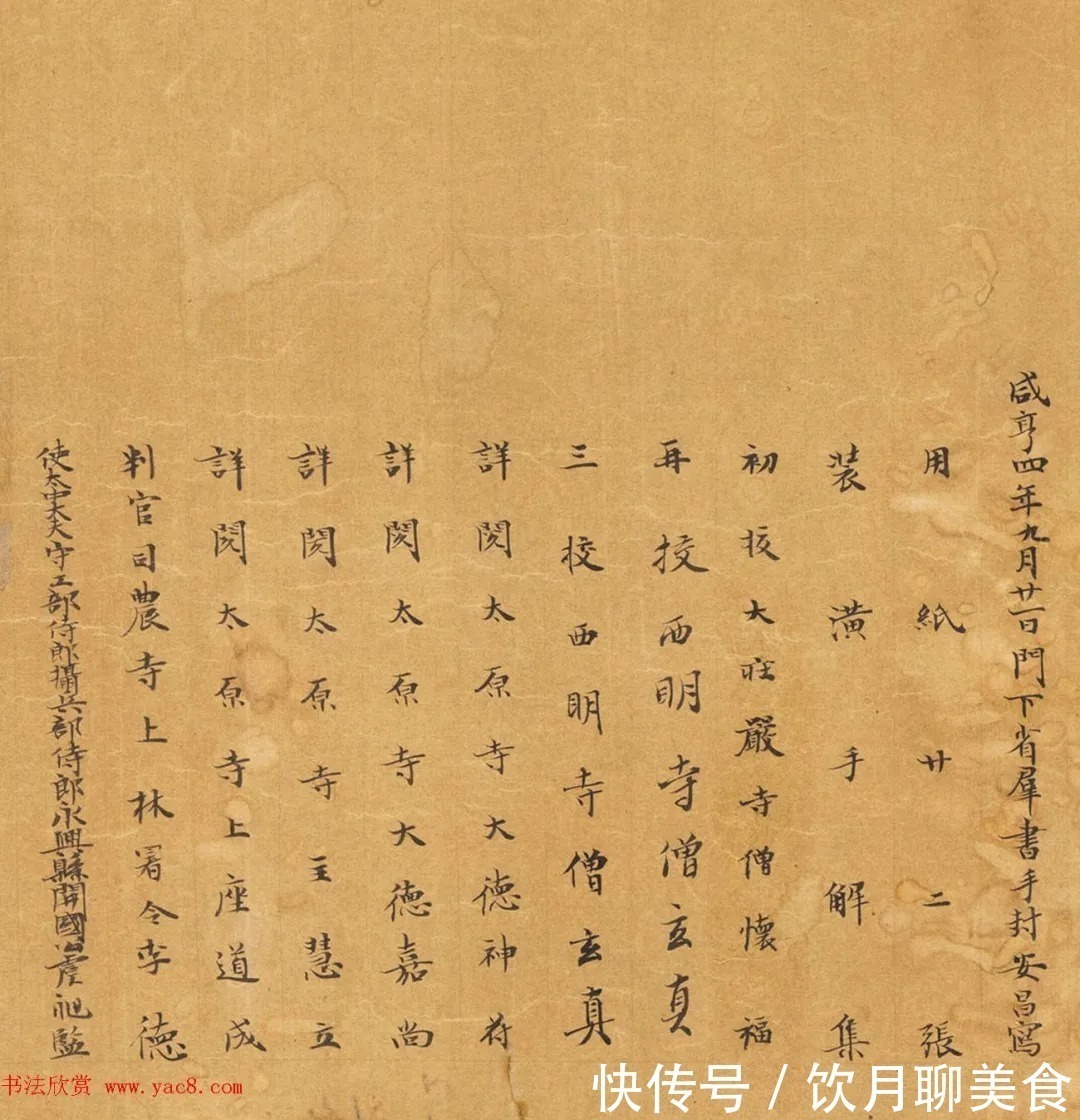 咸亨四年九月廿一日門下省群書手封安昌寫
用紙廿二張
裝潢手解集
初挍大莊嚴寺僧懷福
再挍西明寺僧玄真
三挍西明寺僧玄真
詳閱太原寺大德神符
詳閱太原寺大德嘉尚
詳閱太原寺主慧立
詳閱太原寺上座道成
判官司農寺上林署令李德
使太中大夫守工部侍郎攝兵部侍郎永興縣開國公虞昶監
书法欣赏 www.yac8.com
快传号 / 饮月聊美食